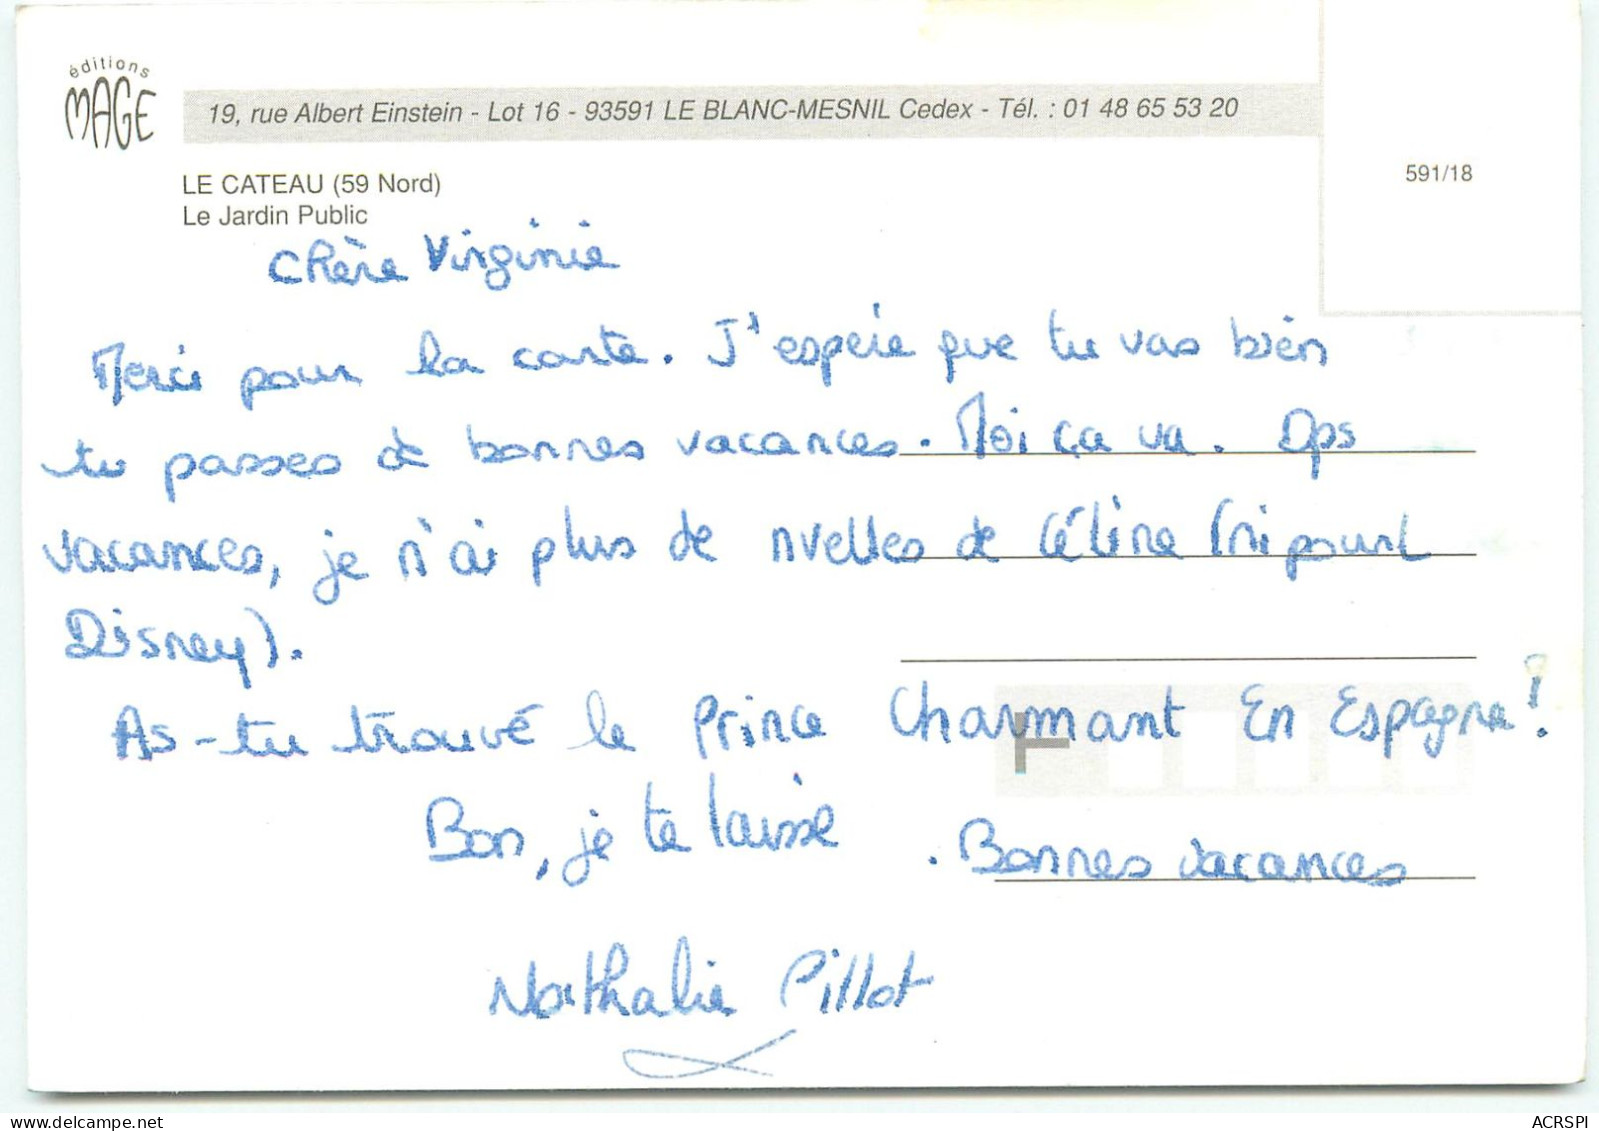 éditions
MAGE
19, rue Albert Einstein - Lot 16 - 93591 LE BLANC-MESNIL Cedex - Tél. : 01 48 65 53 20
591/18
LE CATEAU (59 Nord)
Le Jardin Public
Chère Virginie
Merci pour la carte. J'espère que tu vas bien
tu passes de bonnes vacances. Moi ça va. Dps
vacances, je n'ai plus de nvelles de Céline (ni pour
Disney).
As-tu trouvé le Prince Charmant En Espagne!
Bon, je te laisse . Bonnes vacances
Nathalie Pillot
ACRSPI